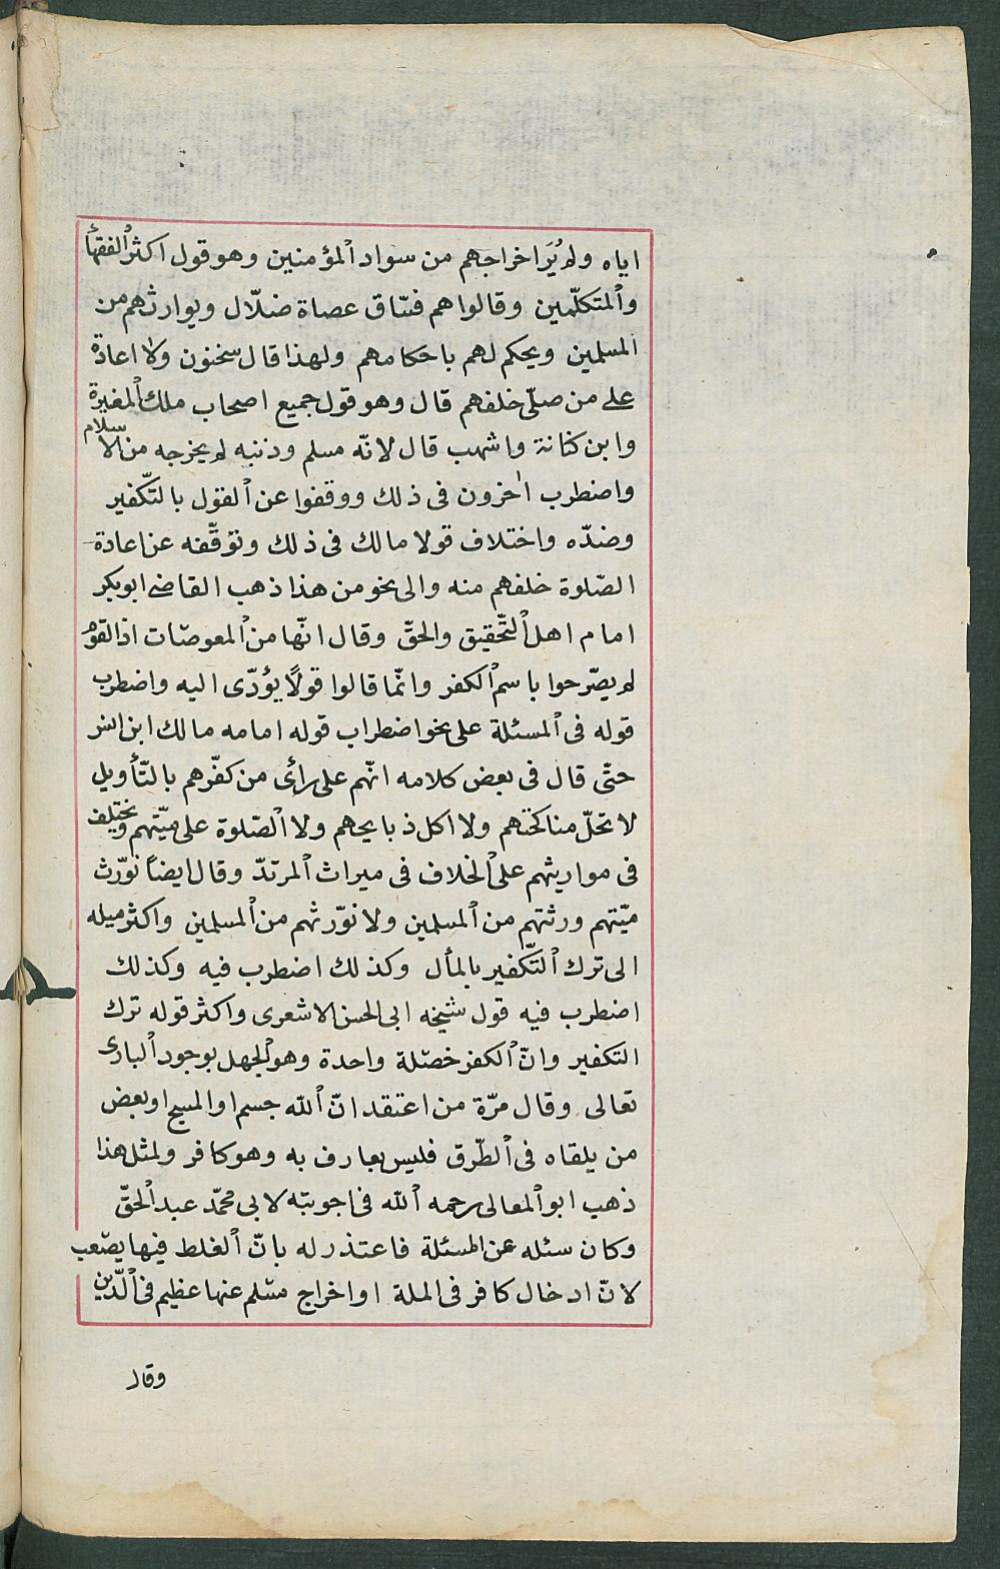 اياه ولم يُرَ اخراجهم من سواد المؤمنين وهو قول اكثر الفقهأ
والمتكلّمين وقالوا هم فسّاق عصاة ضلّال ويوارثهم من
المسلمين ويحكم لهم باحكامهم ولهذا قال سحنون ولا اعادة
على من صلّى خلفهم قال وهو قول جميع اصحاب ملك المغيرة
وابن كنانة واشهب قال لانّه مسلم وذنبه لم يخرجه من الاسلام
واضطرب اٰخرون فى ذلك ووقفوا عن القول بالتّكفير
وضدّه واختلاف قولا مالك فى ذلك وتوقّفه عن اعادة
الصّلوة خلفهم منه والى نحو من هذا ذهب القاضى ابو بكر
امام اهل التّحقيق والحقّ وقال انّها من المعوصّات اذ القوم
لم يصّرحوا باسم الكفر وانّما قالوا قولًا يؤدّى اليه واضطرب
قوله فى المسئلة على نحو اضطراب قوله امامه مالك ابن انس
حتّى قال فى بعض كلامه انّهم على رأى من كفّرهم بالتّأويل
لا تحلّ مناكحتهم ولا اكل ذبايحهم ولا الصّلوة على ميّتهم ويختلف
فى مواريثهم على الخلاف فى ميراث المرتدّ وقال ايضاً نورّث
ميّتهم ورثتهم من المسلمين ولا نوّرثهم من المسلمين واكثر ميله
الى ترك التّكفير بالمأل وكذلك اضطرب فيه وكذلك
اضطرب فيه قول شيخه ابى الحسن الاشعرى واكثر قوله ترك
التكفير وانّ الكفر خصّلة واحدة وهو الجهل بوجود البارى
تعالى وقال مرّة من اعتقد انّ الله جسم او المسيح او بعض
من يلقاه فى الطّرق فليس بعارف به وهو كافر ولمثل هذا
ذهب ابو المعالى رحمه الله فى اجوبتّه لابى محمّد عبد الحقّ
وكان سئله عن المسئلة فاعتذر له بانّ الغلط فيها يصّعب
لانّ ادخال كافر فى الملة او اخراج مسّلم عنها عظيم فى الدّين
وقال